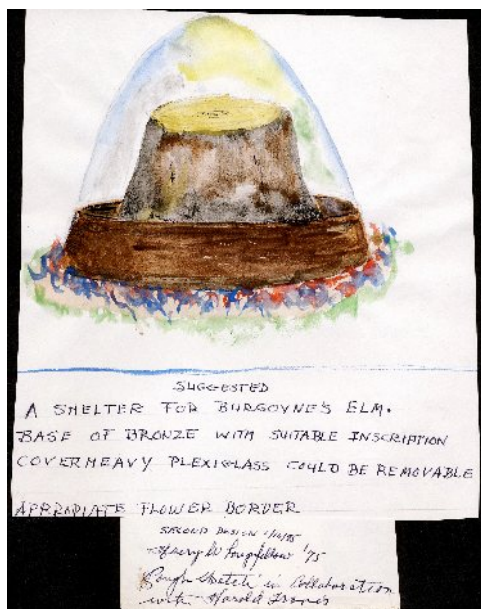 SUGGESTED
A SHELTER FOR BURGOYNE'S ELM.
BASE OF BRONZE WITH SUITABLE INSCRIPTION
COVER HEAVY PLEXIGLASS COULD BE REMOVABLE
APPROPIATE FLOWER BORDER
SECOND DESIGN
Henry W Longfellow '75
Rough Sketch in Collaboration
with Harold